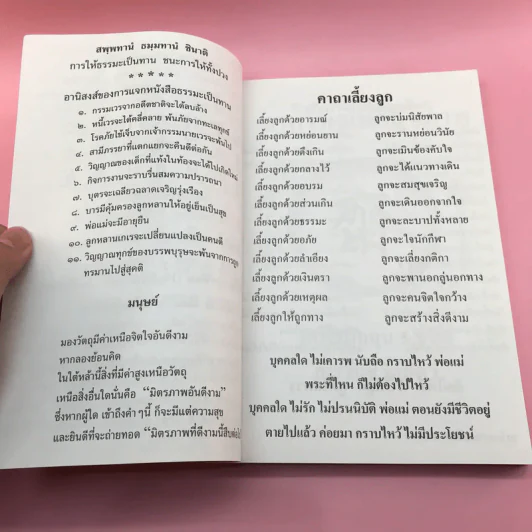 สพฺพทานํ ธมฺมทานํ ชินาติ
การให้ธรรมะเป็นทาน ชนะการให้ทั้งปวง
* * * * *
อานิสงส์ของการแจกหนังสือธรรมะเป็นทาน
๑. กรรมเวรจากอดีตชาติจะได้ลบล้าง
๒. หนี้เวรจะได้คลี่คลาย พ้นภัยจากทะเลทุกข์
๓. โรคภัยไข้เจ็บจากเจ้ากรรมนายเวรจะพ้นไป
๔. สามีภรรยาที่แตกแยกจะคืนดีต่อกัน
๕. วิญญาณของเด็กที่แท้งในท้องจะได้ไปเกิดใหม่
๖. กิจการงานจะราบรื่นสมความปรารถนา
๗. บุตรจะเฉลียวฉลาดเจริญรุ่งเรือง
๘. บารมีคุ้มครองลูกหลานให้อยู่เย็นเป็นสุข
๙. พ่อแม่จะมีอายุยืน
๑๐. ลูกหลานเกเรจะเปลี่ยนแปลงเป็นคนดี
๑๑. วิญญาณทุกข์ของบรรพบุรุษจะพ้นจากการถูก
ทรมานไปสู่สุคติ
มนุษย์
มองวัตถุมีค่าเหนือจิตใจอันดีงาม
หากลองย้อนคิด
ในใต้หล้านี้สิ่งที่มีค่าสูงเหนือวัตถุ
เหนือสิ่งอื่นใดนั่นคือ “มิตรภาพอันดีงาม”
ซึ่งหากผู้ใด เข้าถึงคำ ๆ นี้ ก็จะมีแต่ความสุข
และยินดีที่จะถ่ายทอด “มิตรภาพที่ดีงามนี้สืบต่อไป
คาถาเลี้ยงลูก
เลี้ยงลูกด้วยอารมณ์ ลูกจะบ่มนิสัยพาล
เลี้ยงลูกด้วยหย่อนยาน ลูกจะรานหย่อนวินัย
เลี้ยงลูกด้วยตึงเกิน ลูกจะเมินข้องคับใจ
เลี้ยงลูกด้วยกลางไว้ ลูกจะได้แนวทางเดิน
เลี้ยงลูกด้วยอบรม ลูกจะสมสุขเจริญ
เลี้ยงลูกด้วยส่วนเกิน ลูกจะเดินออกจากใจ
เลี้ยงลูกด้วยธรรมะ ลูกจะละบาปทั้งหลาย
เลี้ยงลูกด้วยอภัย ลูกจะใจนักกีฬา
เลี้ยงลูกด้วยลำเอียง ลูกจะเลี่ยงกติกา
เลี้ยงลูกด้วยเงินตรา ลูกจะพานอกลู่นอกทาง
เลี้ยงลูกด้วยเหตุผล ลูกจะคนจิตใจกว้าง
เลี้ยงลูกให้ถูกทาง ลูกจะสร้างสิ่งดีงาม
บุคคลใด ไม่เคารพ นับถือ กราบไหว้ พ่อแม่
พระที่ไหน ก็ไม่ต้องไปไหว้
บุคคลใด ไม่รัก ไม่ปรนนิบัติ พ่อแม่ ตอนยังมีชีวิตอยู่
ตายไปแล้ว ค่อยมา กราบไหว้ ไม่มีประโยชน์